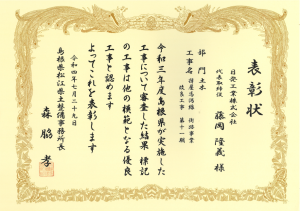 表彰状
日発工業株式会社
代表取締役
藤岡隆義 様
部門 土木
工事名
街路事業
改良工事 第十一期
令和三年度島根県が実施した
工事について審査した結果 標記
の工事は他の模範となる優良
工事と認めます
よってこれを表彰します
令和四年七月二十九日
島根県松江県土整備事務所長
森脇 孝